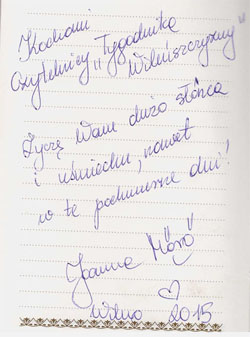 Kochani
Czytelnicy "Tygodnika
Wileńszczyzny"
Życzę Wam dużo słońca
i uśmiechu, nawet
w te pochmurne dni!
Joanna Moro
Wilno 2015